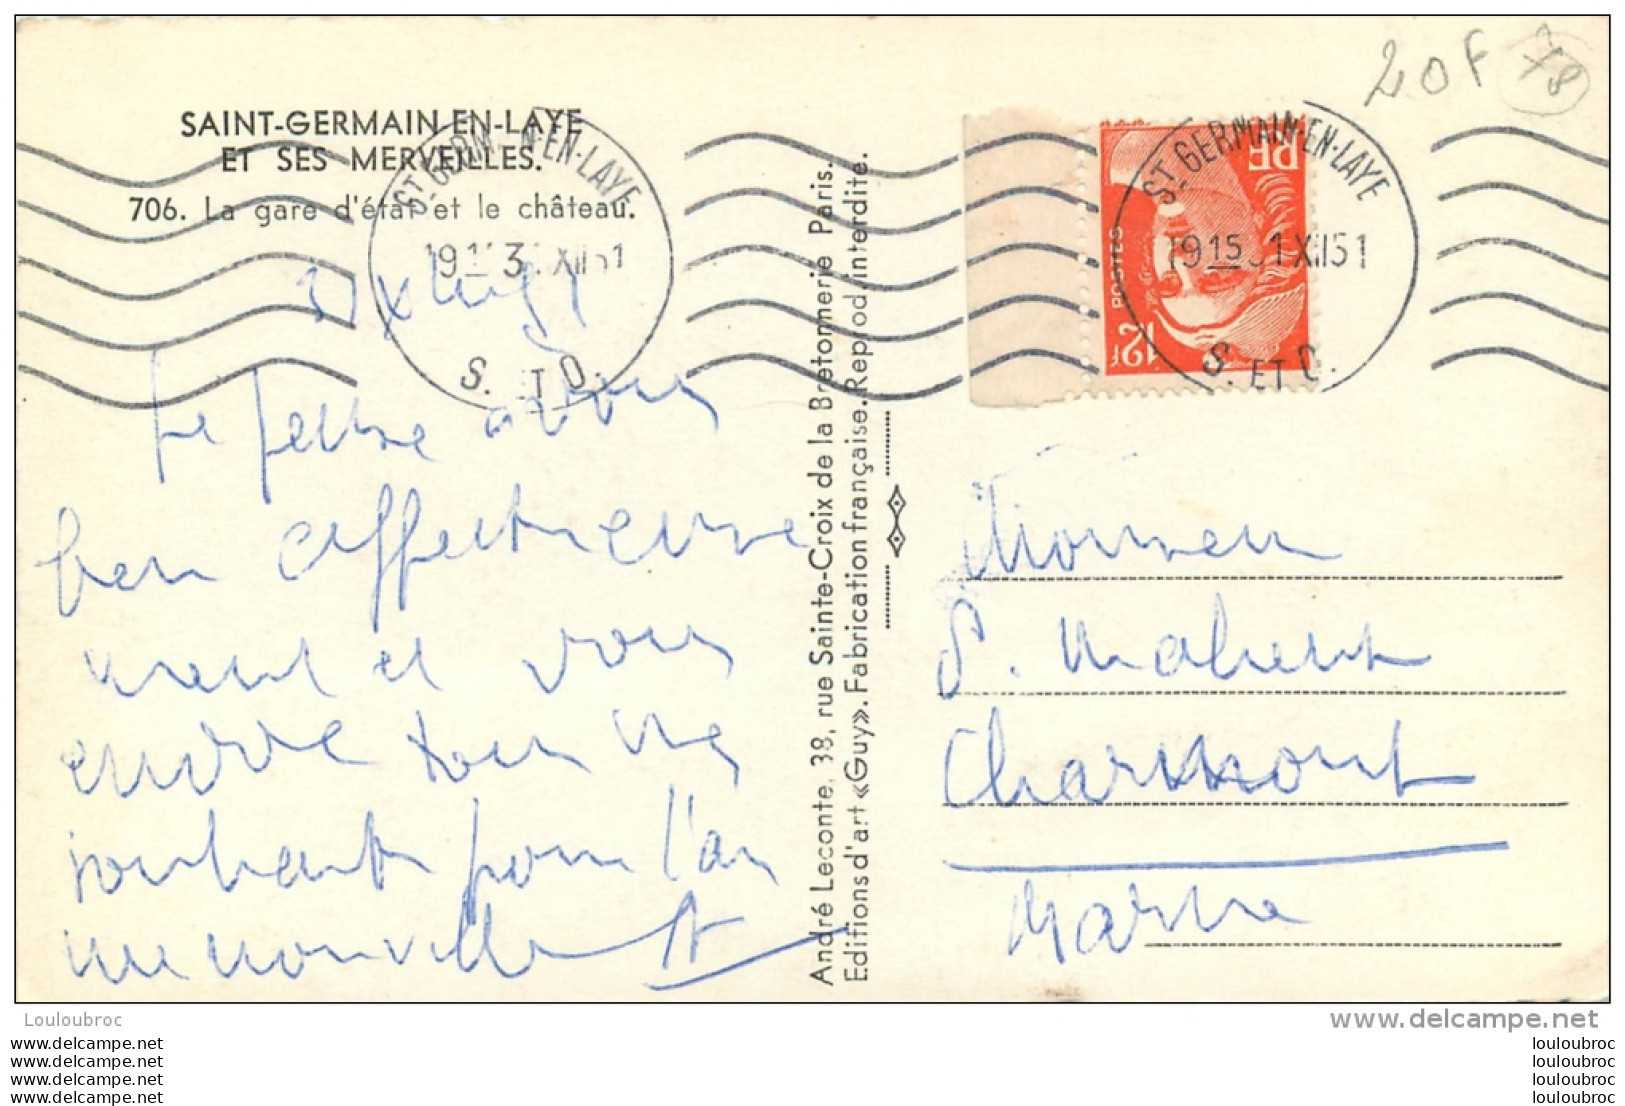 20F 78
SAINT-GERMAIN-EN-LAYE
ET SES MERVEILLES.
706. La gare d'état et le château.
ST GERM N-EN-LAYE
19 3 XII 51
S. ET O.
ST GERMAIN-EN-LAYE
19 15 31 XII 51
S. ET O.
RF
POSTES
12F
Je pense à vous
bien affectueuse
ment et vous
envoie tous mes
souhaits pour l'an
née nouvelle
André Leconte, 38, rue Sainte-Croix de la Bretonnerie Paris.
Editions d'art «Guy». Fabrication française. Reprod. interdite.
Monsieur
P. Mahent
Charmont
Marne
Louloubroc
www.delcampe.net
www.delcampe.net
www.delcampe.net
www.delcampe.net
www.delcampe.net
louloubroc
louloubroc
louloubroc
louloubroc